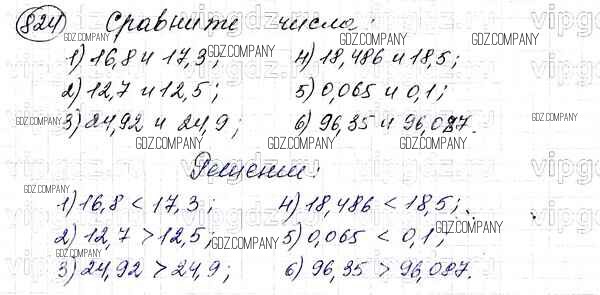 824 Сравните числа:
1) 16,8 и 17,3; 4) 18,486 и 18,5;
2) 12,7 и 12,5; 5) 0,065 и 0,1;
3) 24,92 и 24,9; 6) 96,35 и 96,087.
Решение:
1) 16,8 < 17,3; 4) 18,486 < 18,5;
2) 12,7 > 12,5; 5) 0,065 < 0,1;
3) 24,92 > 24,9; 6) 96,35 > 96,087.